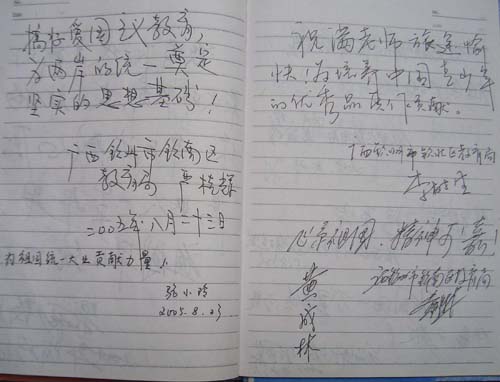 搞好爱国主义教育,
为两岸的统一奠定
坚实的思想基础!
广西钦州市钦南区
教育局 严
二00五年·八月二十三日
为祖国统一大业贡献力量!
张小玲
2005.8.23
祝满老师旅途愉
快!为培养中国青少年
的优秀品质作贡献。
广西钦州市钦北区教育局
李
心系祖国,精神可嘉!
钦州市钦南区教育局
黄成林